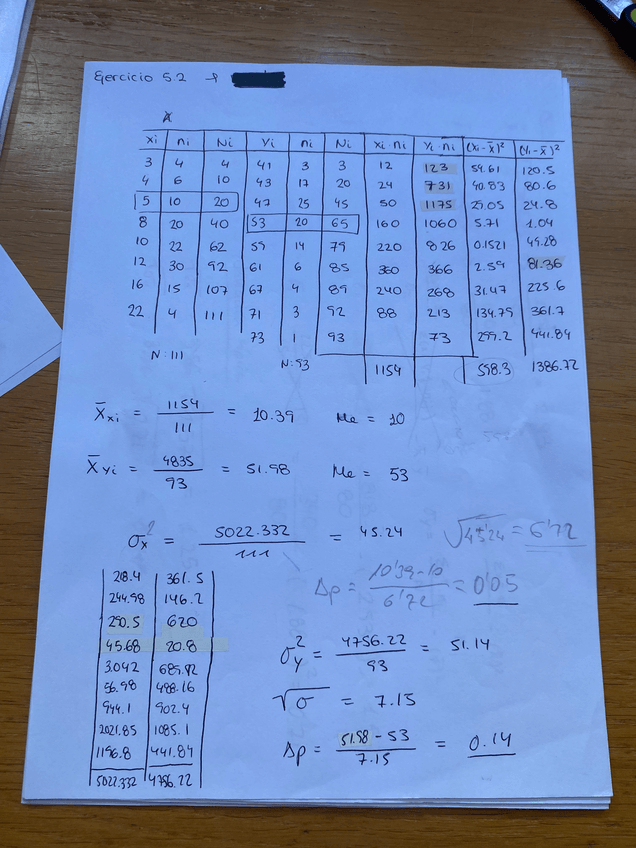 Ejercicio 5.2 →
xi ni Ni Yi ni Ni xi·ni Yi·ni (xi-x̄)² (yi-x̄)²
3 4 4 41 3 3 12 123 54.61 120.5
4 6 10 43 17 20 24 731 40.83 80.6
5 10 20 47 25 45 50 1175 29.05 24.8
8 20 40 53 20 65 160 1060 5.71 1.04
10 22 62 59 14 79 220 826 0.1521 49.28
12 30 92 61 6 85 360 366 2.59 81.36
16 15 107 67 4 89 240 268 31.47 225.6
22 4 111 71 3 92 88 213 134.79 361.7
73 1 93 73 299.2 441.84
N: 111 N: 93 1154 598.3 1386.72
X̄xi = 1154/111 = 10.39 Me = 10
X̄yi = 4835/93 = 51.98 Me = 53
σx² = 5022.332/111 = 45.24 √45'24 = 6'72
218.4 361.5
244.98 146.2
290.5 620
45.68 20.8
3.042 689.92
56.98 488.16
944.1 902.4
2021.85 1085.1
1196.8 441.84
5022.332 4756.22
Δp = 10'39-10/6'72 = 0'05
σy² = 4756.22/93 = 51.14
√σ = 7.15
Δp = 51.98 - 53/7.15 = 0.14